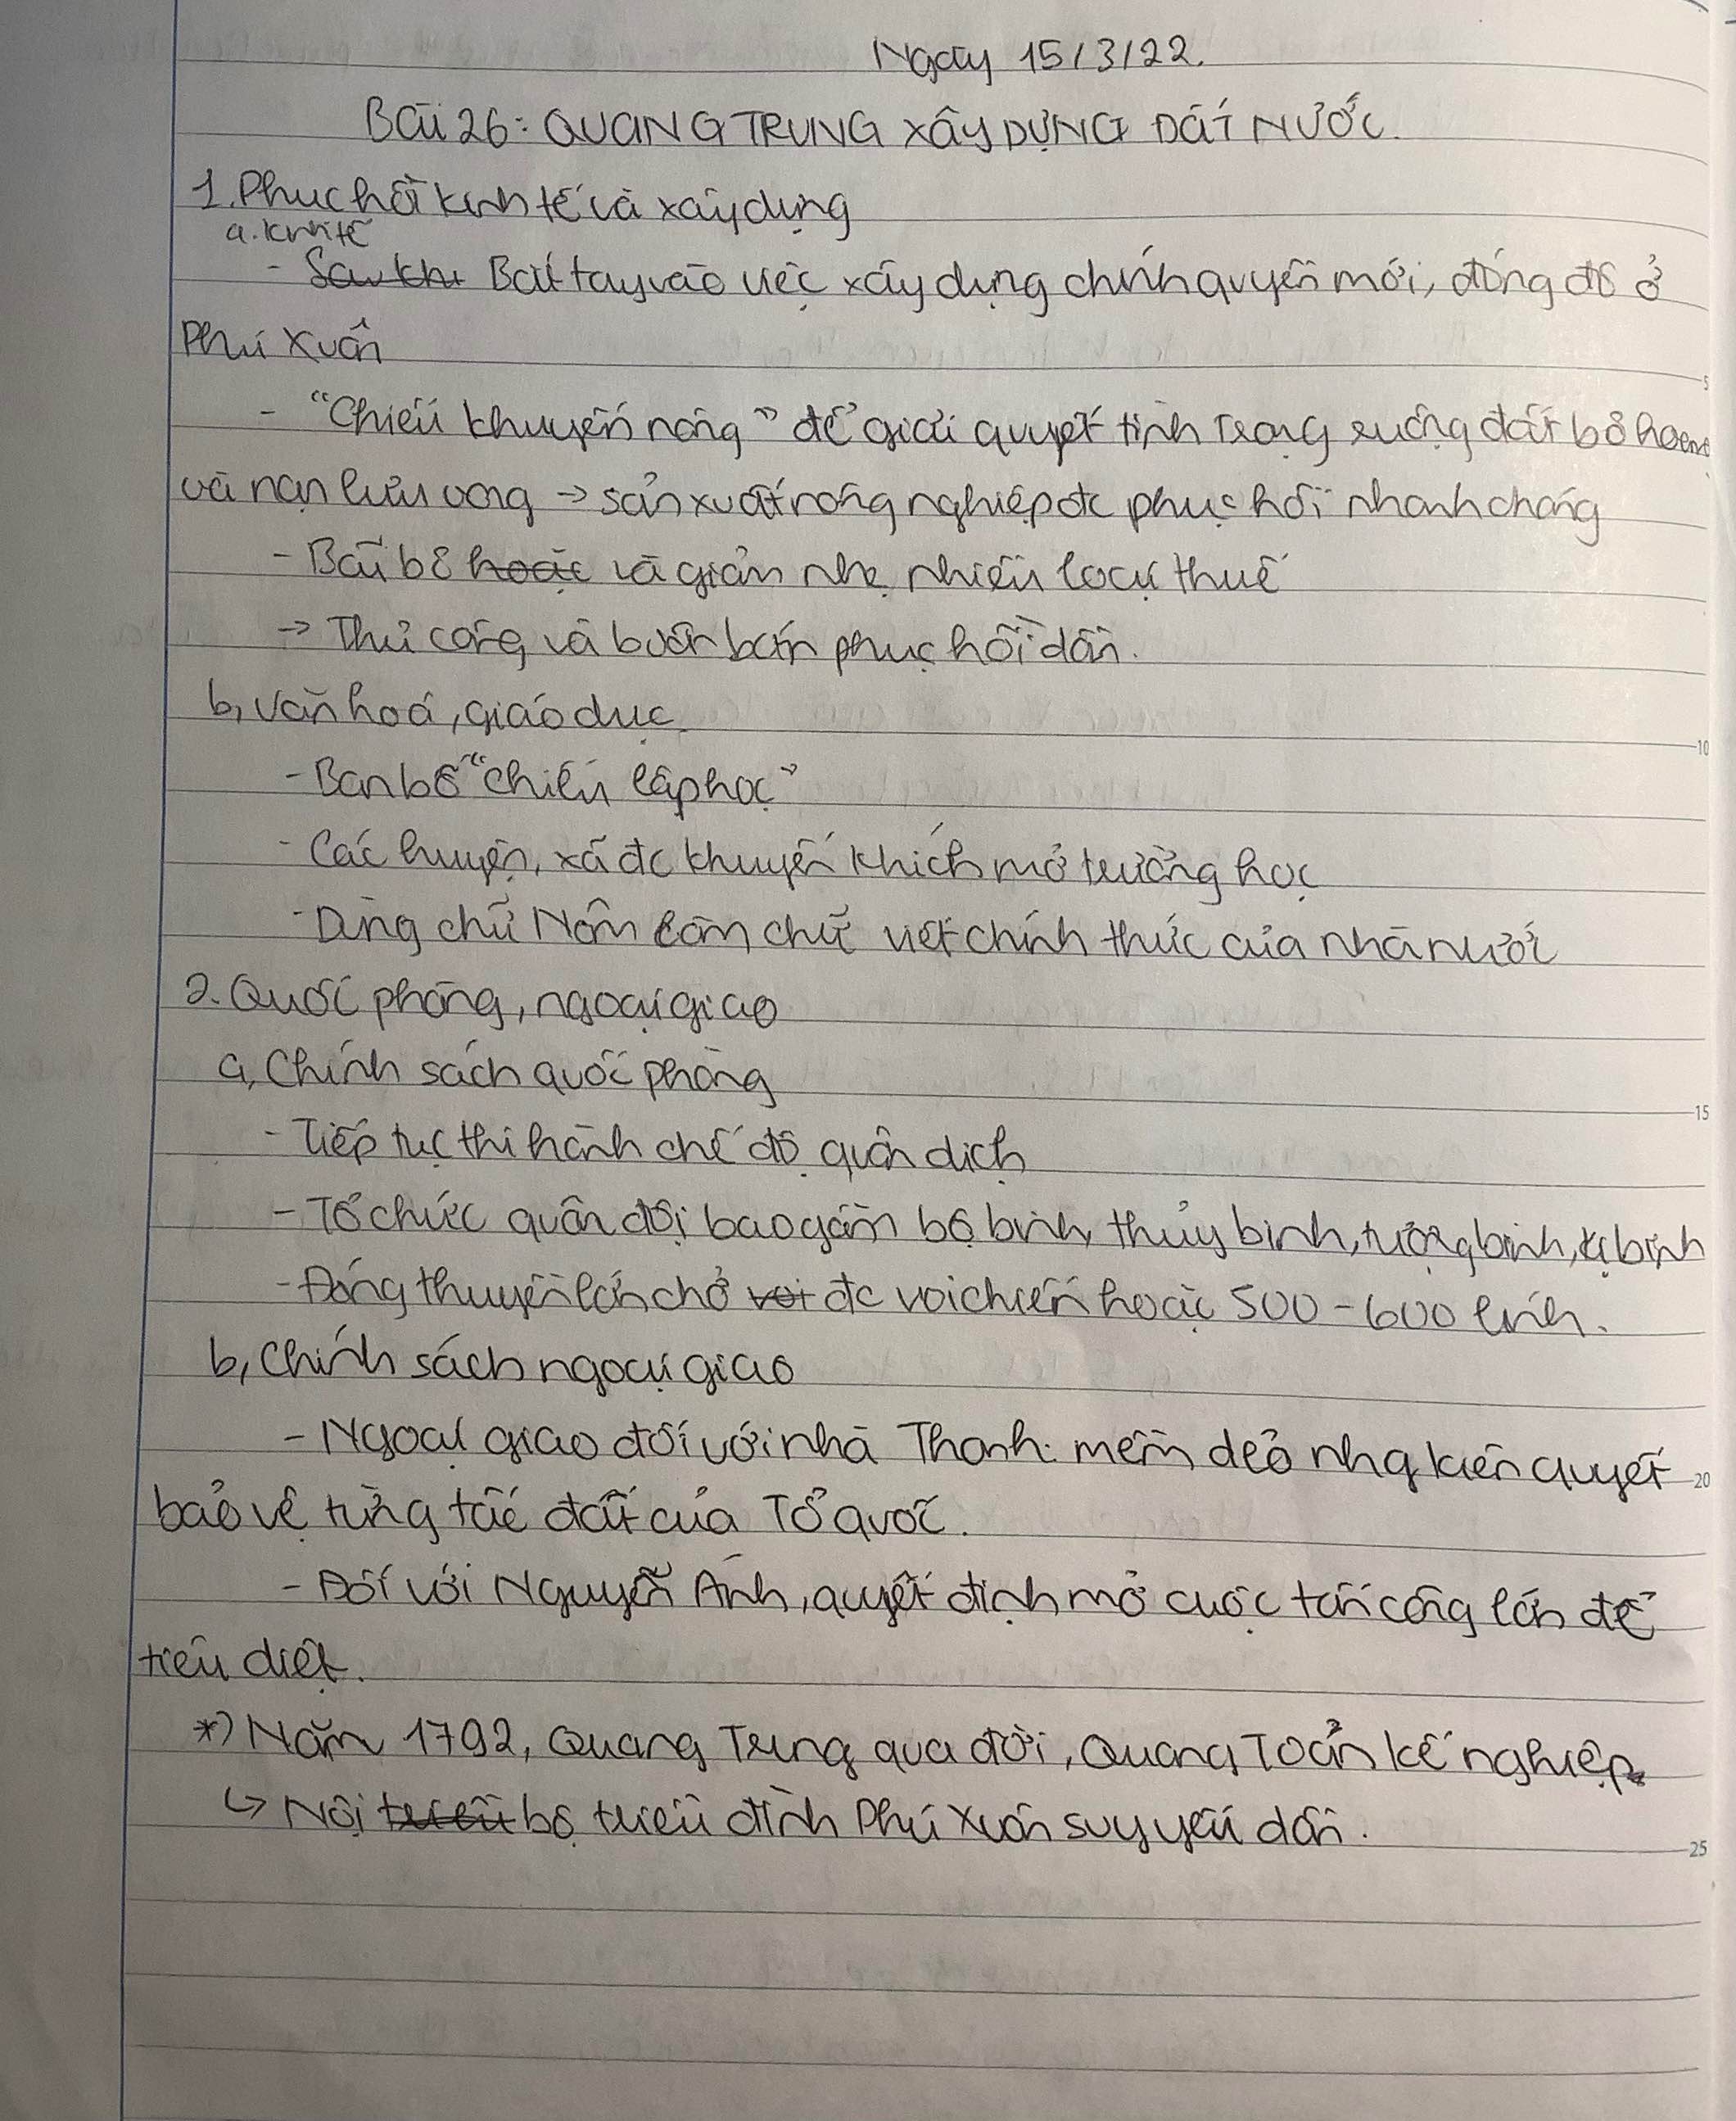 Ngày 15/3/22.
Bài 26: QUANG TRUNG XÂY DỰNG ĐẤT NƯỚC.
1. Phục hồi kinh tế và xây dựng
a. kinh tế
- Sau khi Bắt tay vào việc xây dựng chính quyền mới, đóng đô ở
Phú Xuân
- "Chiếu khuyến nông" để giải quyết tình trạng ruộng đất bỏ hoang
và nạn lưu vong → sản xuất nông nghiệp đc phục hồi nhanh chóng
- Bãi bỏ hoặc và giảm nhẹ nhiều loại thuế
→ Thủ công và buôn bán phục hồi dần.
b, văn hoá, giáo dục
- Ban bố "chiếu lập học"
- Các huyện, xã đc khuyến khích mở trường học
- Dùng chữ Nôm làm chữ viết chính thức của nhà nước
2. Quốc phòng, ngoại giao
a, Chính sách quốc phòng
- Tiếp tục thi hành chế độ quân dịch
- Tổ chức quân đội bao gồm bộ binh, thủy binh, tượng binh, kị binh
- Đóng thuyền lớn chở voi đc voi chiến hoặc 500 - 600 lính.
b, Chính sách ngoại giao
- Ngoại giao đối với nhà Thanh: mềm dẻo nhg kiên quyết
bảo vệ từng tấc đất của Tổ quốc.
- Đối với Nguyễn Ánh, quyết định mở cuộc tấn công lớn để
tiêu diệt.
*) Năm 1792, Quang Trung qua đời, Quang Toản kế nghiệp.
↳ Nội triều bộ triều đình Phú Xuân suy yếu dần.
5
10
15
20
25